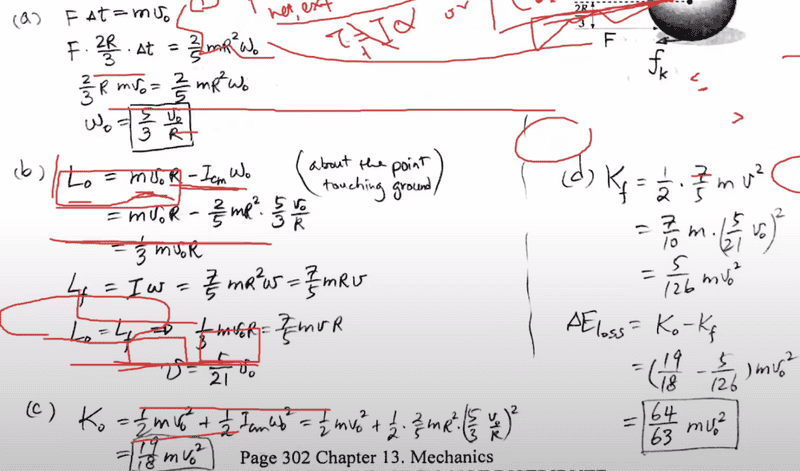 (a) F Δt = m v₀
F · 2R/3 · Δt = 2/5 mR² ω₀
2/3 R m v₀ = 2/5 mR² ω₀
ω₀ = 5/3 v₀/R
net, ext
τ = I α or
2R
3
F
fₖ
(b) L₀ = m v₀ R - I_cm ω₀ (about the point touching ground)
= m v₀ R - 2/5 mR² · 5/3 v₀/R
= 1/3 m v₀ R
L_f = I ω = 7/5 mR² ω = 7/5 mRv
L₀ = L_f ⇒ 1/3 m v₀ R = 7/5 m v R
v = 5/21 v₀
(c) K₀ = 1/2 m v₀² + 1/2 I_cm ω₀² = 1/2 m v₀² + 1/2 · 2/5 mR² · (5/3 v₀/R)²
= 19/18 m v₀²
(d) K_f = 1/2 · 7/5 m v²
= 7/10 m · (5/21 v₀)²
= 5/126 m v₀²
ΔE_loss = K₀ - K_f
= (19/18 - 5/126) m v₀²
= 64/63 m v₀²
Page 302 Chapter 13. Mechanics